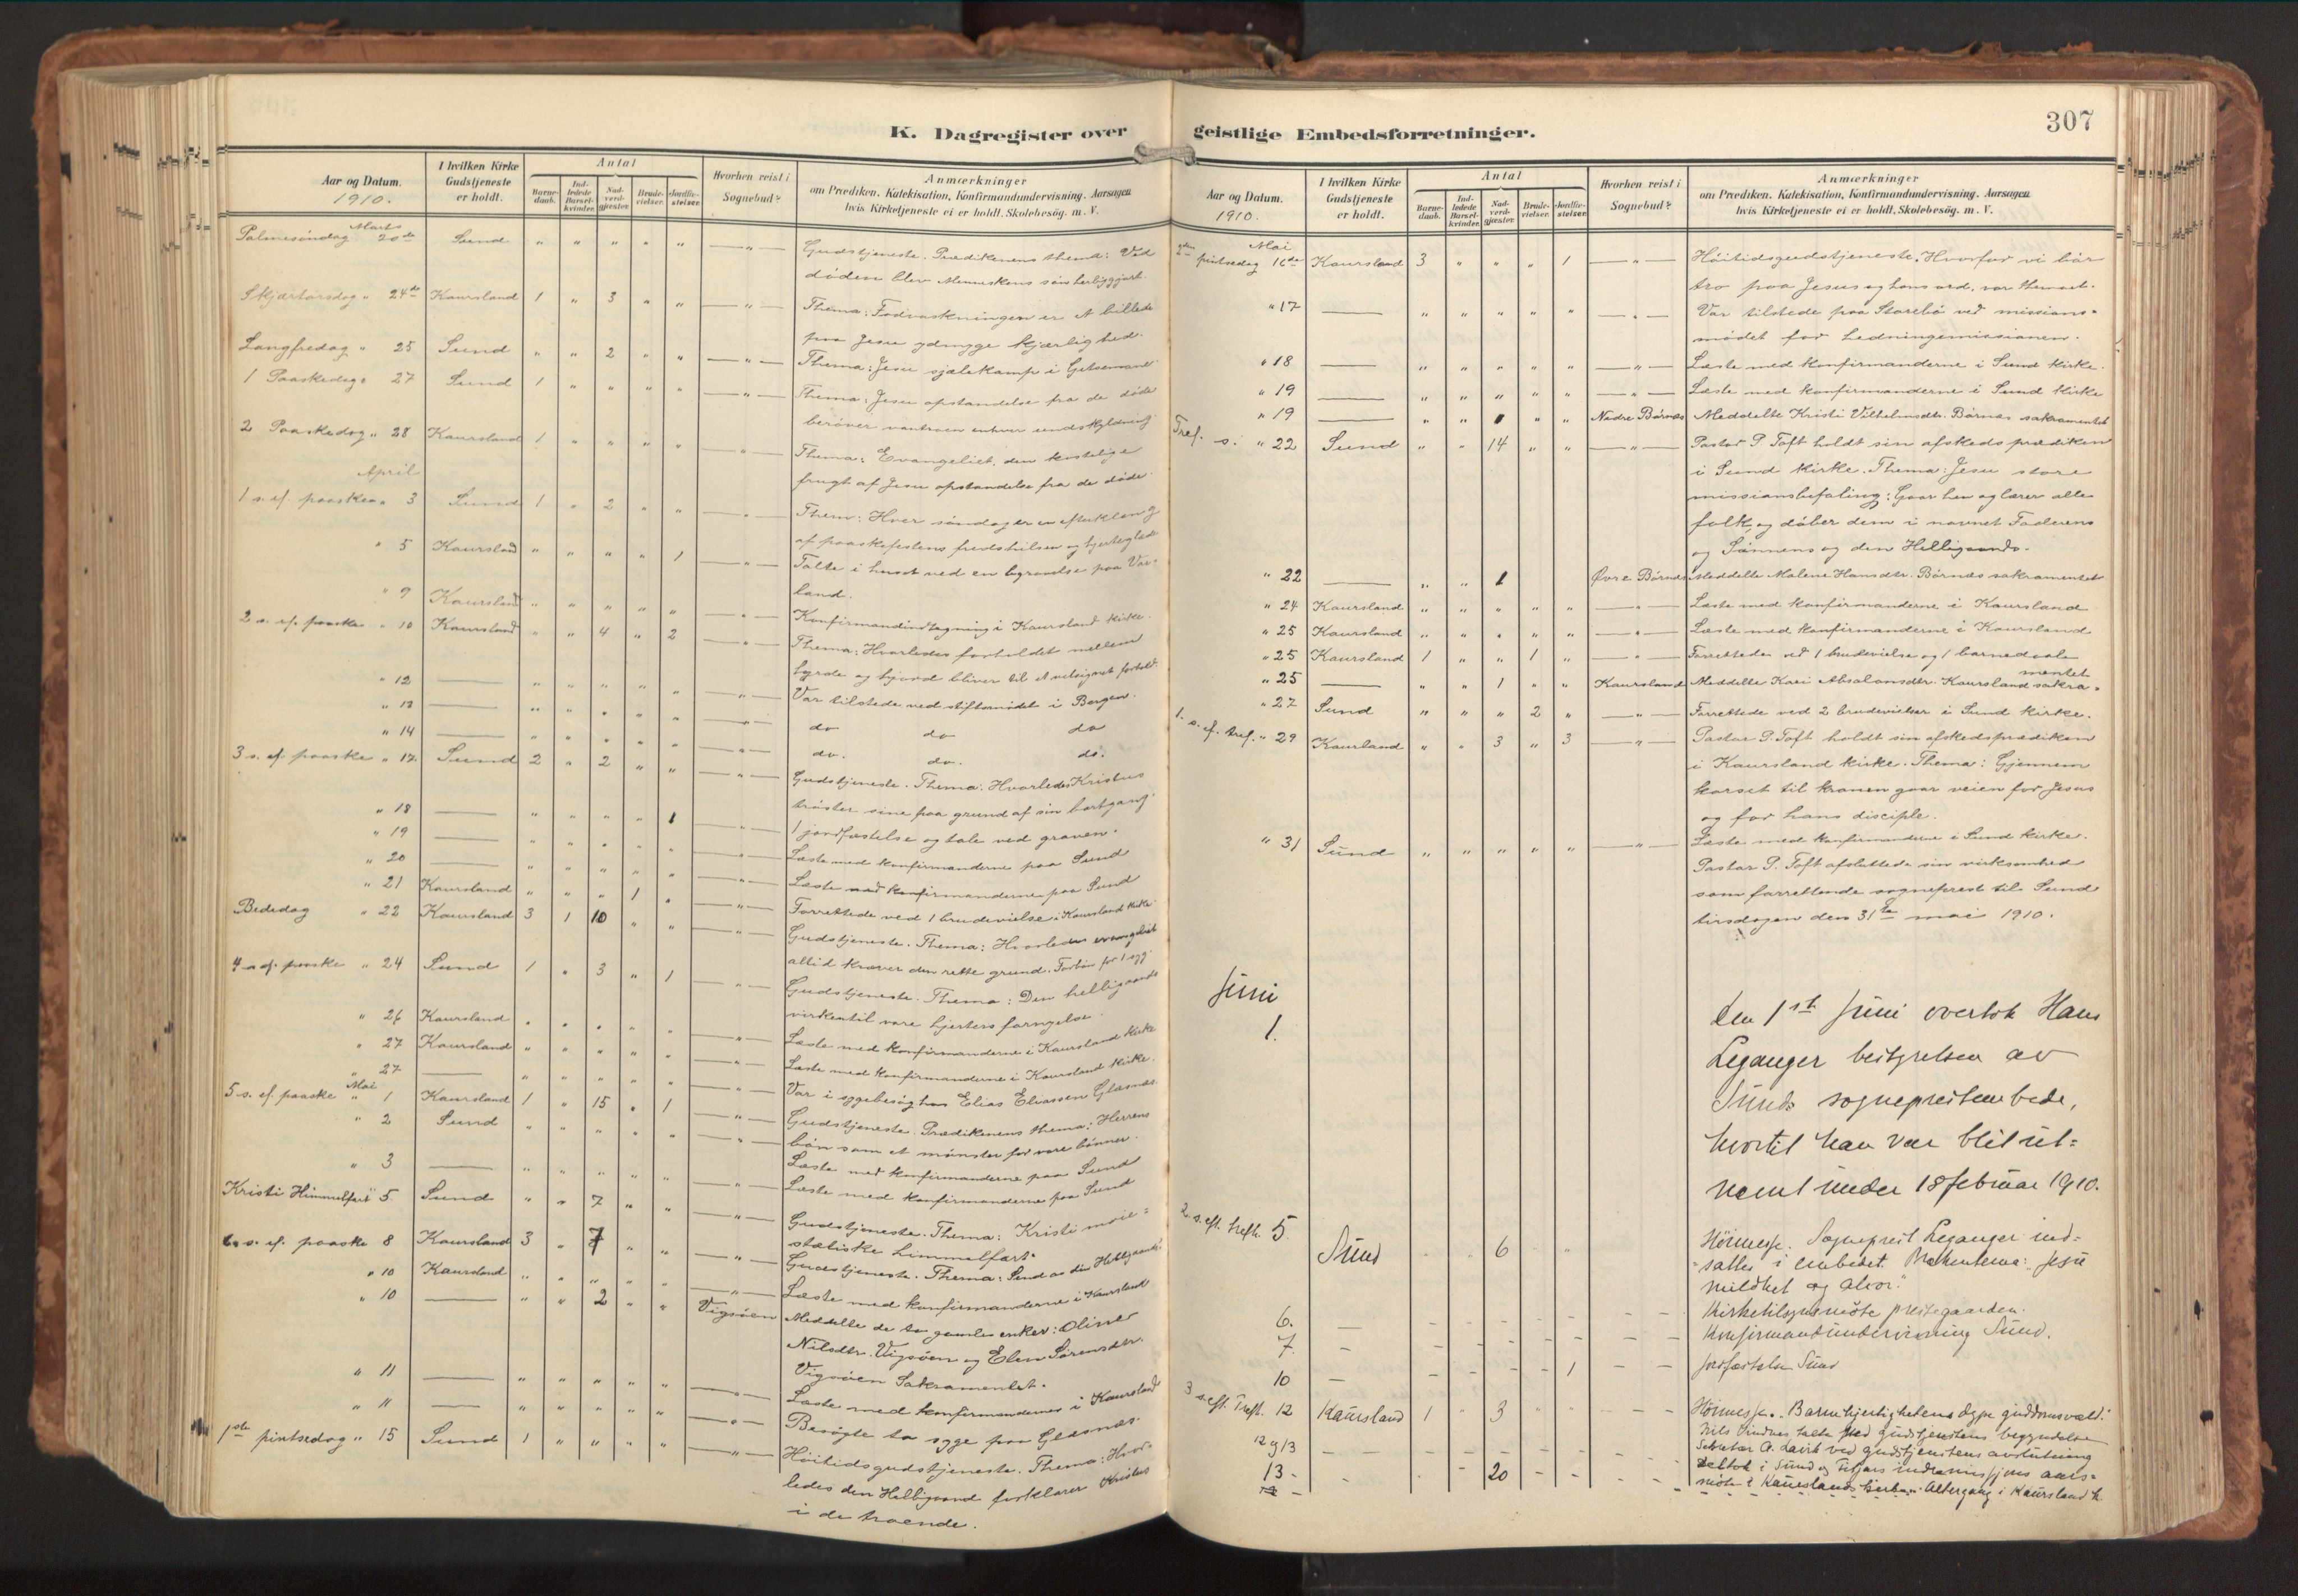 K. Dagregister over
Aar og Datum.
1910.
I hvilken Kirke
Gudstjeneste
er holdt.
Antal
Barne-
daab.
Ind-
ledede
Barsel-
kvinder.
Nad-
verd-
gjæster.
Brude-
vielser.
Jordfæ-
stelser.
Hvorhen reist i
Sognebud?
Anmærkninger
om Prædiken, Katekisation, Konfirmandundervisning. Aarsagen
hvis Kirketjeneste ei er holdt. Skolebesög. m. V.
Marts
Palmesöndag 20de Sund " " " " " — " — Gudstjeneste. Prædikenens thema: Ved
döden blev Menneskens sön herliggjort.
Skjærtorsdag " 24de Kaursland 1 " 3 " " — " — Thema: Fodvaskningen er et billede
paa Jesu ydmyge kjærlighed.
Langfredag " 25 Sund " " 2 " " — " — Thema: Jesu sjælekamp i Getsemane
1 Paaskedag " 27 Sund 1 " " " " — " — Thema: Jesu opstandelse fra de döde
beröver vantroen enhver undskyldning
2 Paaskedag " 28 Kaursland 1 " " " " — " — Thema: Evangeliet, den kostelige
frugt af Jesu opstandelse fra de döde.
April
1 s. ef. paasken " 3 Sund 1 " 2 " " — " — Them: Hver söndag er en efterklang
af paaskefestens fredshilsen og hjerteglæde
" 5 Kaursland " " " " 1 — " — Talte i huset ved en begravelse paa Vor-
land.
" 9 Kaursland " " " " " — " — Konfirmandindtagning i Kaursland kirke.
2 s. ef. paaske " 10 Kaursland " " 4 " 2 — " — Thema: Hvorledes forholdet mellem
hyrde og hjord bliver til et velsignet forhold.
" 12 —— " " " " " — " — Var tilstede ved stiftsmödet i Bergen.
" 13 —— " " " " " — " — do do do
" 14 —— " " " " " — " — do. do. do.
3 s. ef. paaske " 17. Sund 2 " 2 " " — " — Gudstjeneste. Thema: Hvorledes Kristus
tröster sine paa grund af sin bortgang.
" 18 —— " " " " 1 — " — 1 jordfæstelse og tale ved graven.
" 19 —— " " " " " — " — Læste med konfirmanderne paa Sund
" 20 —— " " " " " — " — Læste med konfirmanderne paa Sund
" 21 Kaursland " " " 1 " — " — Forrettede ved 1 brudevielse i Kaursland kirke
Bededag " 22 Kaursland 3 1 10 " " — " — Gudstjeneste. Thema: Hvorledes evangeliet
altid kræver den rette grund. Forbön for 1 syg.
4 s. ef. paaske " 24 Sund 1 " 3 " 1 — " — Gudstjeneste. Thema: Den helligaands
virken til vore hjerters fornyelse.
" 26 Kaursland " " " " " — " — Læste med konfirmanderne i Kaursland kirke
" 27 Kaursland " " " " " — " — Læste med konfirmanderne i Kaursland kirke.
" 27 —— " " " " " — " — Var i sygebesög hos Elias Eliassen Glæsnæs.
Mai
5 s. ef. paaske " 1 Kaursland 1 " 15 " 1 — " — Gudstjeneste. Prædikenens thema: Herrens
bön som et mönster for vore bönner.
" 2 Sund " " " " " — " — Læste med konfirmanderne paa Sund
" 3 —— " " " " " — " — Læste med konfirmanderne paa Sund
Kristi Himmelfart " 5 Sund " " 7 " " — " — Gudstjeneste. Thema: Kristi maie-
stætiske himmelfart.
6. s. ef. paaske 8 Kaursland 3 " 7 " " — " — Gudstjeneste. Thema: Send os din Helligaand!
" 10 Kaursland " " " " " — " — Læste med konfirmanderne i Kaursland
" 10 —— " " 2 " " Vigsöen Meddelte de to gamle enker: Oline
Nilsdtr. Vigsöen og Elen Sörensdtr.
Vigsöen Sakramentet.
" 11 —— " " " " " — " — Læste med konfirmanderne i Kaursland
" 11 —— " " " " " — " — Besögte to syge paa Glæsnæs.
1ste pintsedag " 15 Sund 1 " " " " — " — Höitidsgudstjeneste. Thema: Hvor-
ledes den Helligaand forklarer Kristus
i de troende.
geistlige Embedsforretninger.
307
Aar og Datum.
1910.
I hvilken Kirke
Gudstjeneste
er holdt.
Antal
Barne-
daab.
Ind-
ledede
Barsel-
kvinder.
Nad-
verd-
gjæster.
Brude-
vielser.
Jordfæ-
stelser.
Hvorhen reist i
Sognebud?
Anmærkninger
om Prædiken, Katekisation, Konfirmandundervisning. Aarsagen
hvis Kirketjeneste ei er holdt. Skolebesög. m. V.
Mai
2den pintsedag 16de Kaursland 3 " " " 1 — " — Höitidsgudstjeneste. Hvorfor vi bör
tro paa Jesus og hans ord, var themaet.
" 17 —— " " " " " — " — Var tilstede paa Starebö ved missions-
mödet for hedningemissionen.
" 18 —— " " " " " — " — Læste med konfirmanderne i Sund kirke.
" 19 —— " " " " " — " — Læste med konfirmanderne i Sund kirke
" 19 —— " " 1 " " Nedre Börnæs Meddelte Kristi Vilhelmsdtr. Börnæs sakramentet
Tref. s. " 22 Sund " " 14 " " — " — Pastor P. Toft holdt sin afskedsprædiken
i Sund kirke. Thema: Jesu store
missionsbefaling: Gaar hen og lærer alle
folk, og döber dem i navnet Faderens
og Sönnens og den Helligaands.
" 22 —— " " 1 Övre Börnæs Meddelte Malene Hansdtr. Börnæs sakramentet
" 24 Kaursland " " " " " — " — Læste med konfirmanderne i Kaursland
" 25 Kaursland " " " " " — " — Læste med konfirmanderne i Kaursland
" 25 Kaursland 1 " " 1 " — " — Forrettede ved 1 brudevielse og 1 barnedaab
mentet
" 25 —— " " 1 " " Kaursland Meddelte Kari Absalonsdtr. Kaursland sakra-
" 27 Sund " " " 2 " — " — Forrettede ved 2 brudevielser i Sund kirke.
1. s. ef. tref. " 29 Kaursland " " 3 " 3 — " — Pastor P. Toft holdt sin afskedsprædiken
i Kaursland kirke. Thema: Gjennem
korset til kronen gaar veien for Jesus
og for hans disciple.
" 31 Sund " " " " " — " — Læste med konfirmanderne i Sund kirke.
Pastor P. Toft afsluttede sin virksomhed
som forrettende sogneprest til Sund
tirsdagen den 31te mai 1910.
Juni
1. Den 1ste Juni overtok Hans
Leganger bestyrelsen av
Sunds sogneprestembede,
hvortil han var blit ut-
nevnt under 18 februar 1910.
2 s. eft. trefh. 5. Sund 6 Höimesse. Sogneprest Leganger ind-
sattes i embedet. Jesu
mildhet og alvor."
6. — Kirketilsynsmöte prestegaarden.
7. — Konfirmantundervisning Sund.
10 — 1 Jordfæstelse Sund
3 s. eft. Trefh. 12 Kaursland 1 " 3 Höimesse. "Barmhjertighetens dype guddomsvæld."
Nils Vindnes talte ved gudstjenstens begyndelse
12 og 13 — Sekretær A. Lavik ved gudstjenstens avslutning
13 - 20 Deltok i Sund og Fitjars indremissjons aars-
möte i Kaurslands bedehus. Altergang i Kaursland k.